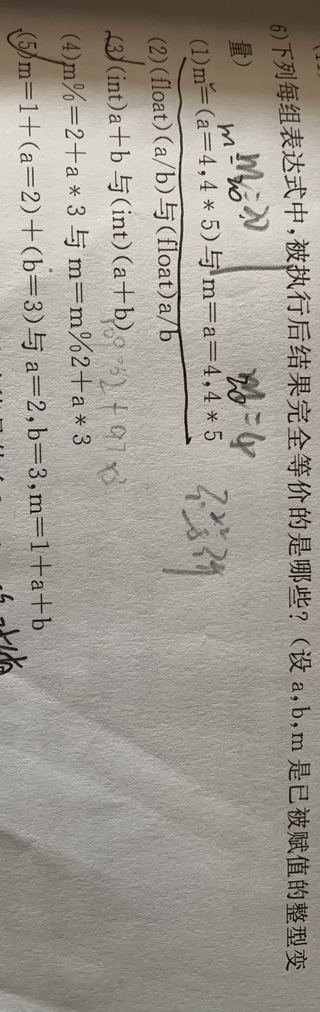 6)下列每组表达式中,被执行后结果完全等价的是哪些?(设 a,b,m 是已被赋值的整型变
量)
(1)m=(a=4,4*5)与 m=a=4,4*5
(2)(float)(a/b)与(float)a/b
(3)(int)a+b 与(int)(a+b)
(4)m%=2+a*3 与 m=m%2+a*3
(5)m=1+(a=2)+(b=3)与 a=2,b=3,m=1+a+b